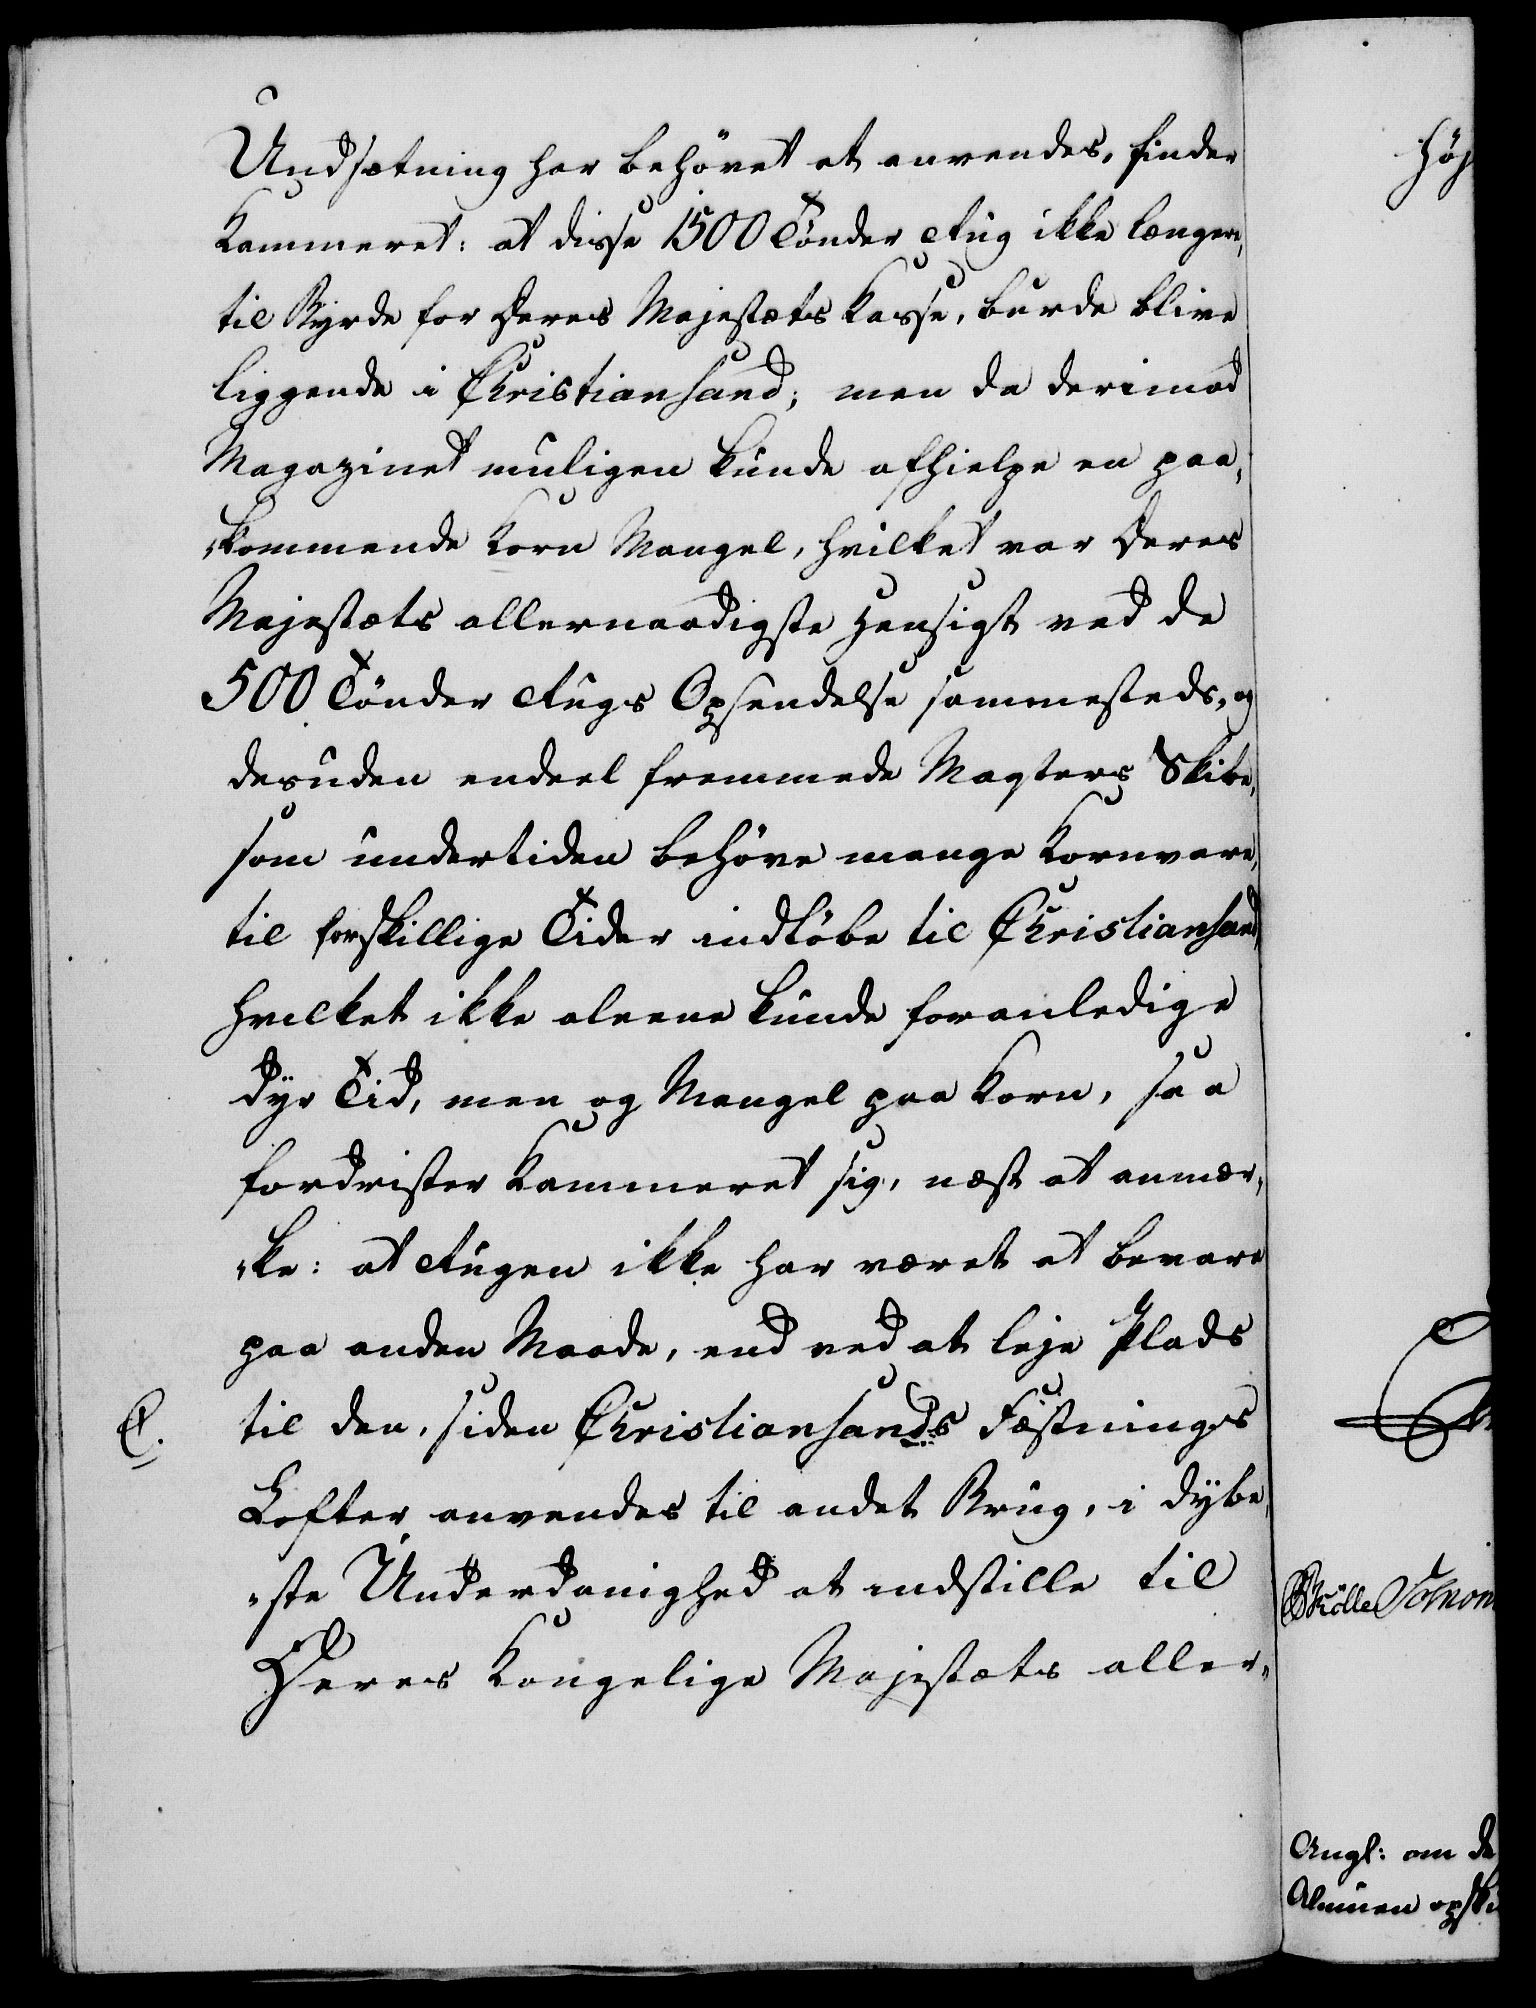 Undsætning har behøvet at anvendes, finder
Kammeret: at disse 1500 Tønder Rug ikke længere,
til Byrde for Deres Majestæts Kasse, burde blive
liggende i Christiansand; men da derimod
Magazinet muligen kunde afhielpe en paa„
„kommende Korn Mangel, hvilket var Deres
Majestæts allernaadigste Hensigt ved de
500 Tønder Rugs Opsendelse sammesteds, og
desuden endeel fremmede Magters Skibe,
som undertiden behøve mange Kornvare,
til forskillige Tider indløbe til Christiansand
hvilket ikke aleene kunde foranledige
dyr Tid, men og Mangel paa Korn, saa
fordrister Kammeret sig, næst at anmær„
„ke: at Rugen ikke har været at bevare
paa anden Maade, end ved at leje Plads
til den, siden Christiansands Fæstnings
Lofter anvendes til andet Brug, i dybe„
„ste Underdanighed at indstille til
Deres Kongelige Majestæts aller„
høj
Angl: om de